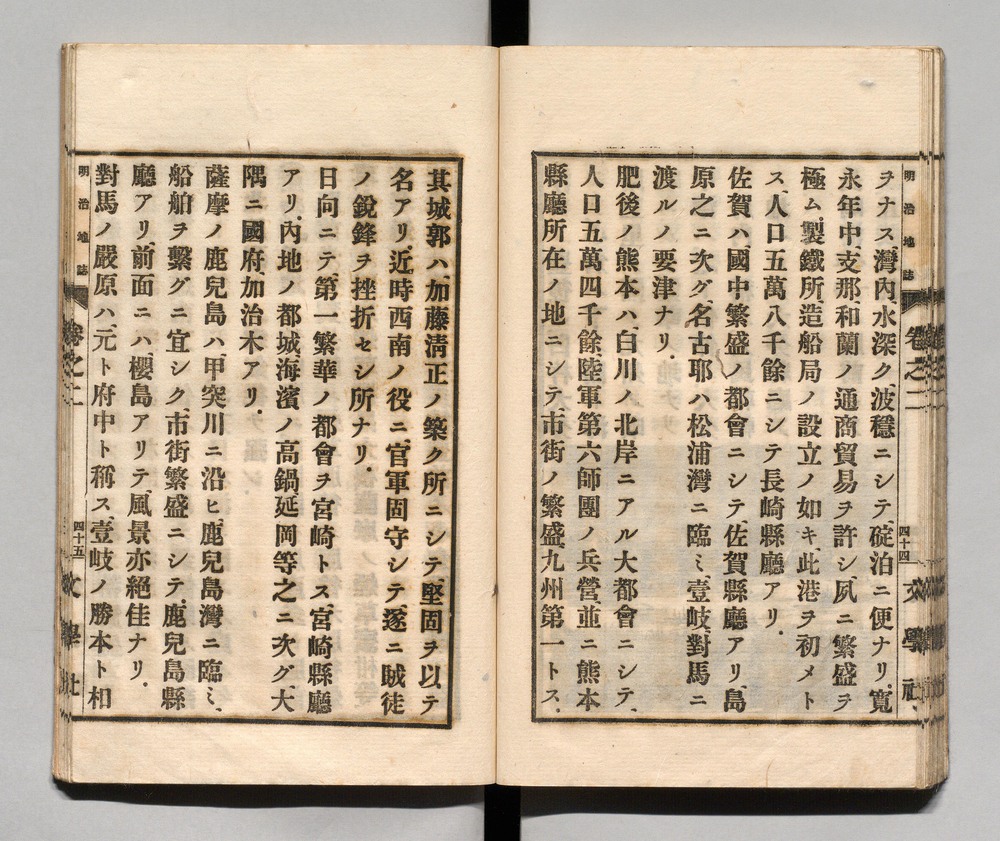 明治地誌
卷之二
四十四
文學社
ヲナス、灣內、水深ク、波穩ニシテ、碇泊ニ便ナリ、寬
永年中、支那、和蘭ノ通商貿易ヲ許シ、夙ニ繁盛ヲ
極ム、製鐵所、造船局ノ設立ノ如キ、此港ヲ初メト
ス、人口五萬八千餘ニシテ長崎縣廳アリ.
佐賀ハ、國中繁盛ノ都會ニシテ、佐賀縣廳アリ、島
原之ニ次グ、名古耶ハ松浦灣ニ臨ミ、壹岐、對馬ニ
渡ルノ要津ナリ.
肥後ノ熊本ハ、白川ノ北岸ニアル大都會ニシテ、
人口五萬四千餘、陸軍第六師團ノ兵營並ニ熊本
縣廳所在ノ地ニシテ、市街ノ繁盛、九州第一トス.
其城郭ハ、加藤淸正ノ築ク所ニシテ、堅固ヲ以テ
名アリ、近時西南ノ役ニ、官軍固守シテ、遂ニ賊徒
ノ銳鋒ヲ挫折セシ所ナリ.
日向ニテ、第一繁華ノ都會ヲ宮崎トス、宮崎縣廳
アリ、內地ノ都城、海濱ノ高鍋、延岡等之ニ次グ、大
隅ニ國府、加治木アリ.
薩摩ノ鹿兒島ハ、甲突川ニ沿ヒ、鹿兒島灣ニ臨ミ、
船舶ヲ繫グニ宜シク、市街繁盛ニシテ、鹿兒島縣
廳アリ、前面ニハ、櫻島アリテ、風景亦絕佳ナリ.
對馬ノ嚴原ハ、元ト府中ト稱ス、壹岐ノ勝本ト相
明治地誌
卷之二
四十五
文學社